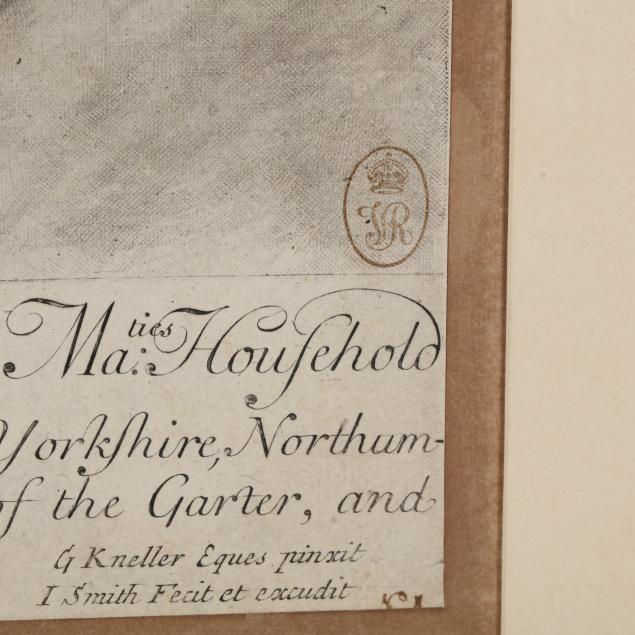 VR
Ma:ties Houſehold
Yorkſhire, Northum-
of the Garter, and
G Kneller Eques pinxit
I Smith Fecit et excudit